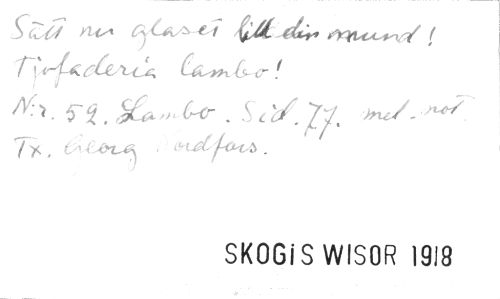 Sätt nu glaset till din mund!
Tjofaderia lambo!
N:r. 59. Lambo. Sid. 77. mel. not.
Tx. Georg Nordfors.
SKOGiS WISOR 1918